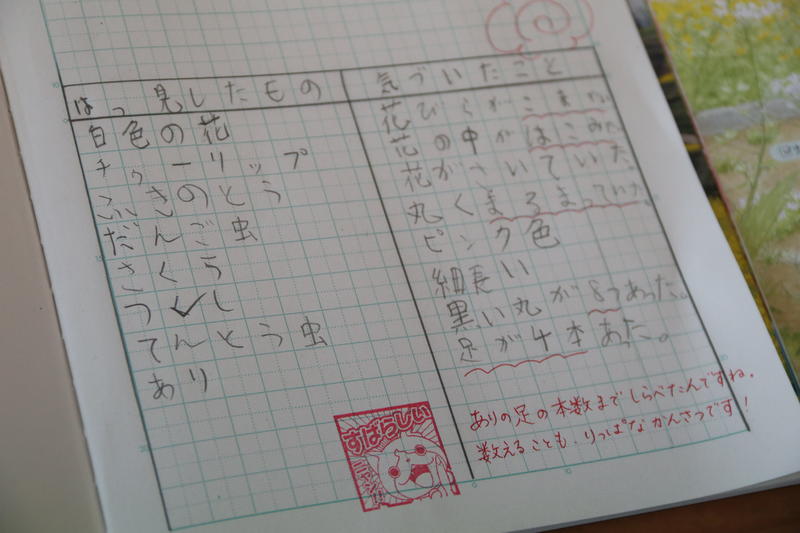 はっ見したもの 気づいたこと
白色の花 花びらがこまかい
チューリップ 花の中がはこみたい
ふきのとう 花がさいていた
だんご虫 丸くまるまっていた
さくら ピンク色
つくし 細長い
てんとう虫 黒い丸が8つあった。
あり 足が4本あった。
ありの足の本数までしらべたんですね。
数えることも、りっぱなかんさつです!
すばらしい
ニャン!!